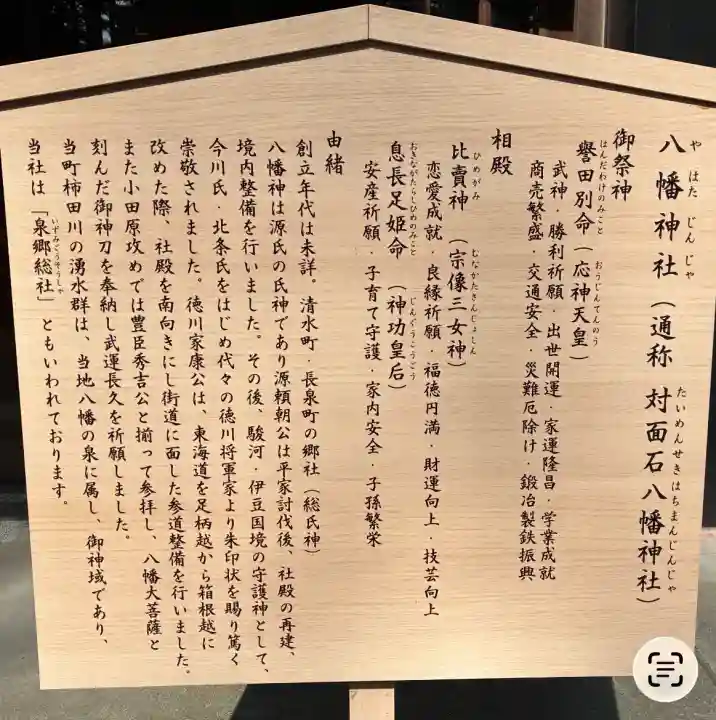 八幡神社(通称 対面石八幡神社)
やはたじんじゃ
たいめんせきはちまんじんじゃ
御祭神
誉田別命(応神天皇)
はんだわけのみこと
おうじんてんのう
武神・勝利祈願・出世開運・家運隆昌・学業成就
商売繁盛・交通安全・災難厄除け・鍛冶製鉄振興
相殿
比賣神(宗像三女神)
ひめがみ
むなかたさんじょしん
恋愛成就・良縁祈願・福徳円満・財運向上・技芸向上
息長足姫命(神功皇后)
おきながたらしひめのみこと
じんぐうこうごう
安産祈願・子育て守護・家内安全・子孫繁栄
由緒
創立年代は未詳。清水町・長泉町の郷社(総氏神)
八幡神は源氏の氏神であり源頼朝公は平家討伐後、社殿の再建、
境内整備を行いました。その後、駿河・伊豆国境の守護神として、
今川氏・北条氏をはじめ代々の徳川将軍家より朱印状を賜り篤く
崇敬されました。徳川家康公は、東海道を足柄越から箱根越に
改めた際、社殿を南向きにし街道に面した参道整備を行いました。
また小田原攻めでは豊臣秀吉公と揃って参拝し、八幡大菩薩と
刻んだ御神刀を奉納し武運長久を祈願しました。
当町柿田川の湧水群は、当地八幡の泉に属し、御神域であり、
当社は「泉郷総社」ともいわれております。
いずみごうそうしゃ